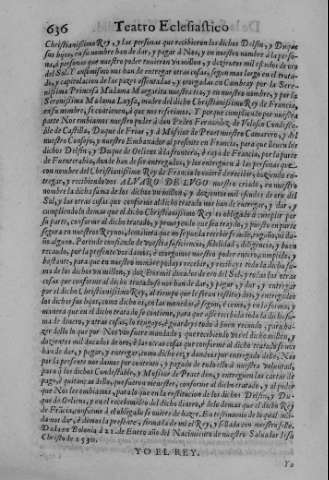 636 Teatro Eclesiastico
Christianissimo Rey, y las personas que recibieren los dichos Delfin, y Duque
sus hijos, en su nombre han de dar, y pagar à Nos, y en nuestro nombre à la perso-
na, ò personas que nuestro poder tuvieren Un millon, y dozientos mil escudos de oro
del Sol. Y ansimismo nos han de entregar otras cosas, segun mas largo en el trata-
do, y capitulacion de la paz assentada, y otorgada en Cambray por la Sere-
nissima Princesa Madama Margarita nuestra tia, y en nuestro nombre, y por la
Serenissima Madama Luysa, madre del dicho Christianissimo Rey de Francia,
en su nombre, se contiene, à que nos referimos. Y porque cumpliendo por nuestra
parte Nos embiamos nuestro poder à don Pedro Fernandez de Velasco Condesta-
ble de Castilla, Duque de Frias, y à Mossior de Praet nuestro Camarero, y del
nuestro Consejo, y nuestro Embaxador al presente en Francia, para que lleven los
dichos Delfin, y Duque de Orliens à la frontera, ò raya de Francia, por la parte
de Fuenterabia, donde han de ser entregados, y los entreguen à las personas que
con nombre del Christianissimo Rey de Francia los havrà de recibir, haziendo en-
tregar, y recibiendo vos ALVARO DE LVGO nuestro criado, en nuestro
nombre la dicha suma de los dichos Un millon, y dozientos mil escudos de oro del
Sol, y las otras que conforme al dicho tratado nos han de entregar, y dar, y
cumpliendo lo demas que el dicho Christianissimo Rey es obligado à cumplir por
su parte, conforme al dicho tratado, y poner todo lo que assi traydo, y puesto en parte
segura en nuestros Reynos, de manera que no se pueda recebir fraude, engaño, ni da-
ño alguno. Por ende confiando de vuestra suficiencia, fidelidad, y diligencia, y buen
recaudo, por la presente vos damos, y otorgamos nuestro poder entero, cumplido, y
bastante, para que en nuestro nombre podays recebir, y recibays toda la dicha su-
ma de los dichos Un millon, y dozientos mil escudos de oro del Sol, y todas las otras
cosas que conforme al dicho tratado nos han de dar, y entregar, y pagar por
el dicho Christianissimo Rey, al tiempo que le fueren restituydos, y entregados
los dichos sus hijos, como dicho es, así en las monedas, ò segun, ò como, y en la forma, y
manera que en el dicho tratado se contiene, para que assi recebida toda la dicha su-
ma de dinero, y otras cosas, lo traygays, y guardeys todo à buen recaudo, para ha-
zer dello lo que por Nos vos fuere mandado, y que recebiendo vos el dicho Un millon, y
dozientos mil ducados de oro, ò las otras cosas que conforme al dicho tratado se nos
han de dar, y pagar, y entregar como dicho es, y dandoos por entregado dello, Nos
por la presente nos damos por contento, y pagado de todo ello à nuestra voluntad,
para que los dichos Condestable, y Mossior de Praet den, y entreguen las cartas de
pago, ò quitanças dello, que fueren menester, conforme al dicho tratado, y al poder
que Nos les embiamos, para lo que en la restitucion de los dichos Delfin, y Du-
que de Orliens, y en el recebimiento del dicho dinero, ò de lo demas que el dicho Rey
de Francia, conforme à lo obligado se quitare de hazer. En testimonio de lo qual man-
damos dar, y dimos la presente, firmada de mi el Rey, y sellada con nuestro sello.
Dada en Bolonia à 21. de Enero año del Nacimiento de nuestro Salvador Iesu
Christo de 1530.
YO EL REY.
Yo